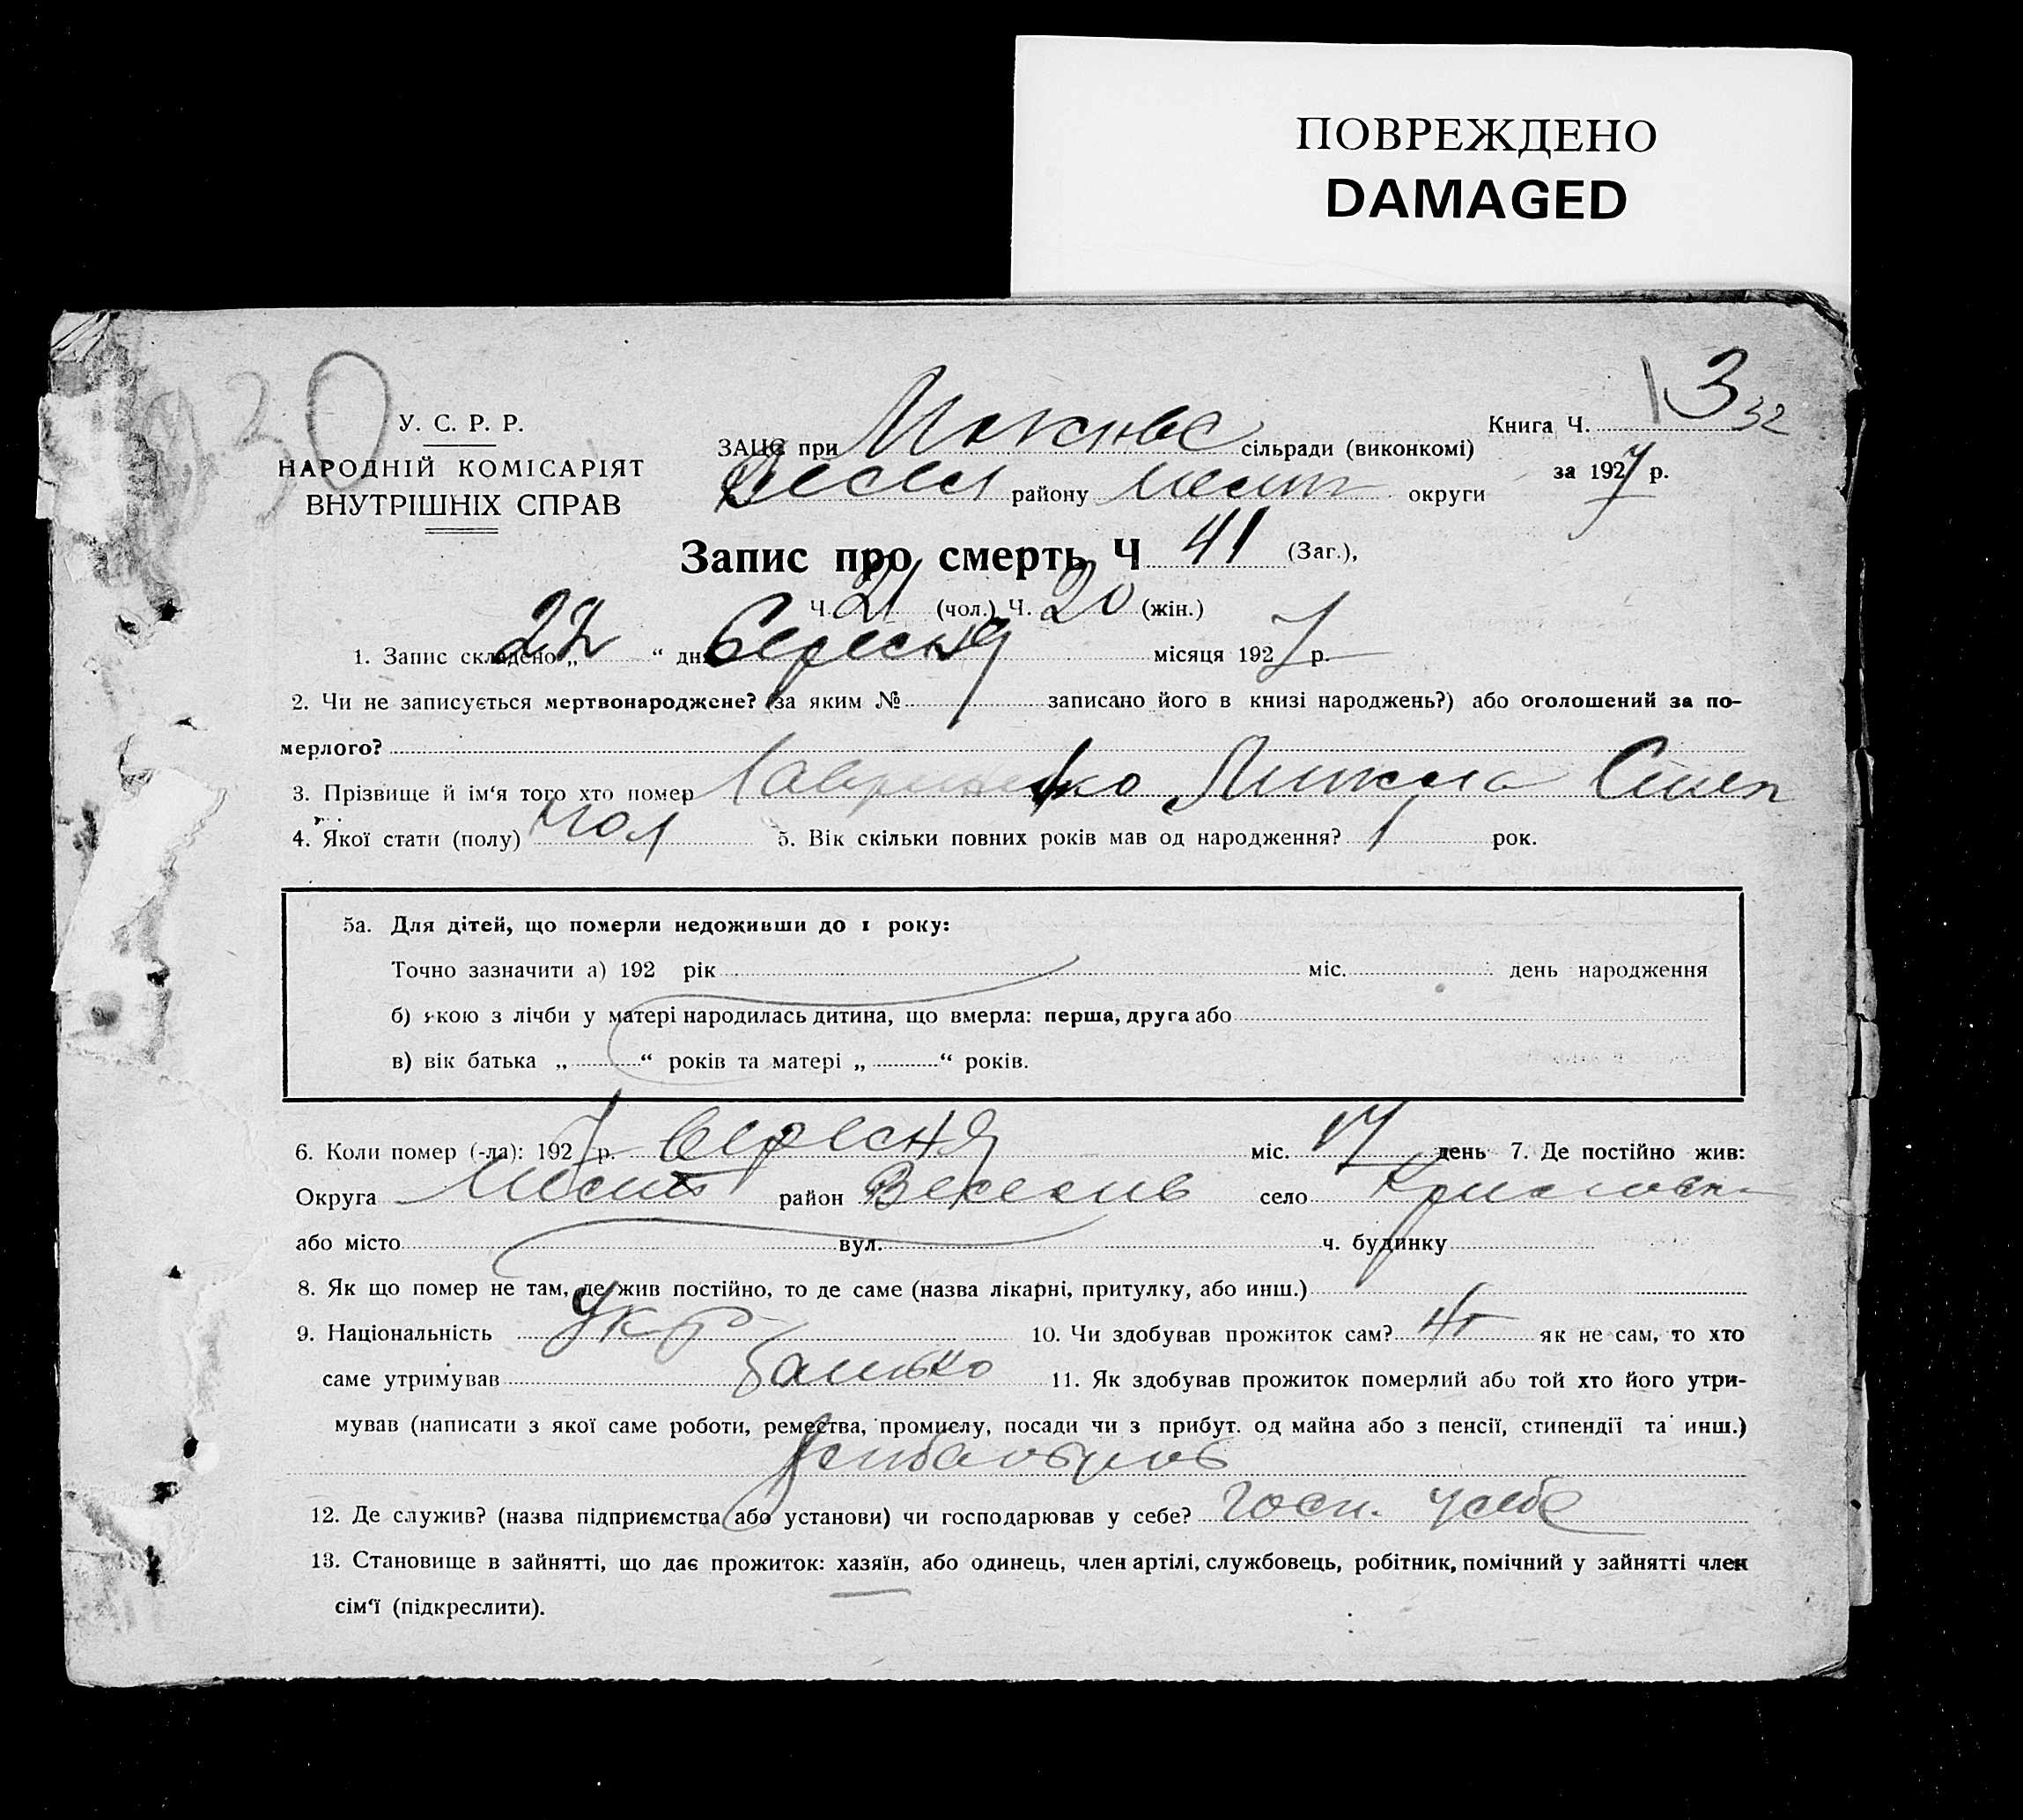 ПОВРЕЖДЕНО
DAMAGED
30
3
32
У. С. Р. Р.
НАРОДНІЙ КОМІСАРІЯТ
ВНУТРІШНІХ СПРАВ
ЗАЦС при сільради (виконкомі)
Книга Ч.
району округи
за 1927 р.
Запис про смерть Ч 41 (Заг.),
Ч. 21 (чол.) Ч. 20 (жін.)
1. Запис складено „22“ дн. Вересня місяця 1927 р.
2. Чи не записується мертвонароджене? (за яким № записано його в книзі народжень?) або оголошений за по-
мерлого?
3. Прізвище й ім‘я того хто помер Степ
4. Якої стати (полу) чол 5. Вік скільки повних років мав од народження? 1 рок.
5а. Для дітей, що померли недоживши до 1 року:
Точно зазначити а) 192 рік міс. день народження
б) якою з лічби у матері народилась дитина, що вмерла: перша, друга або
в) вік батька „ “ років та матері „ “ років.
6. Коли помер (-ла): 1927 р. Вересня міс. 17 день 7. Де постійно жив:
Округа район село
або місто вул. ч. будинку
8. Як що помер не там, де жив постійно, то де саме (назва лікарні, притулку, або инш.)
9. Національність Укр 10. Чи здобував прожиток сам? як не сам, то хто
саме утримував батько 11. Як здобував прожиток померлий або той хто його утри-
мував (написати з якої саме роботи, ремества, промислу, посади чи з прибут. од майна або з пенсії, стипендії та инш.)
12. Де служив? (назва підприємства або установи) чи господарював у себе? госп. у себе
13. Становище в зайнятті, що дає прожиток: хазяїн, або одинець, член артілі, службовець, робітник, помічний у зайнятті член
сім‘ї (підкреслити).